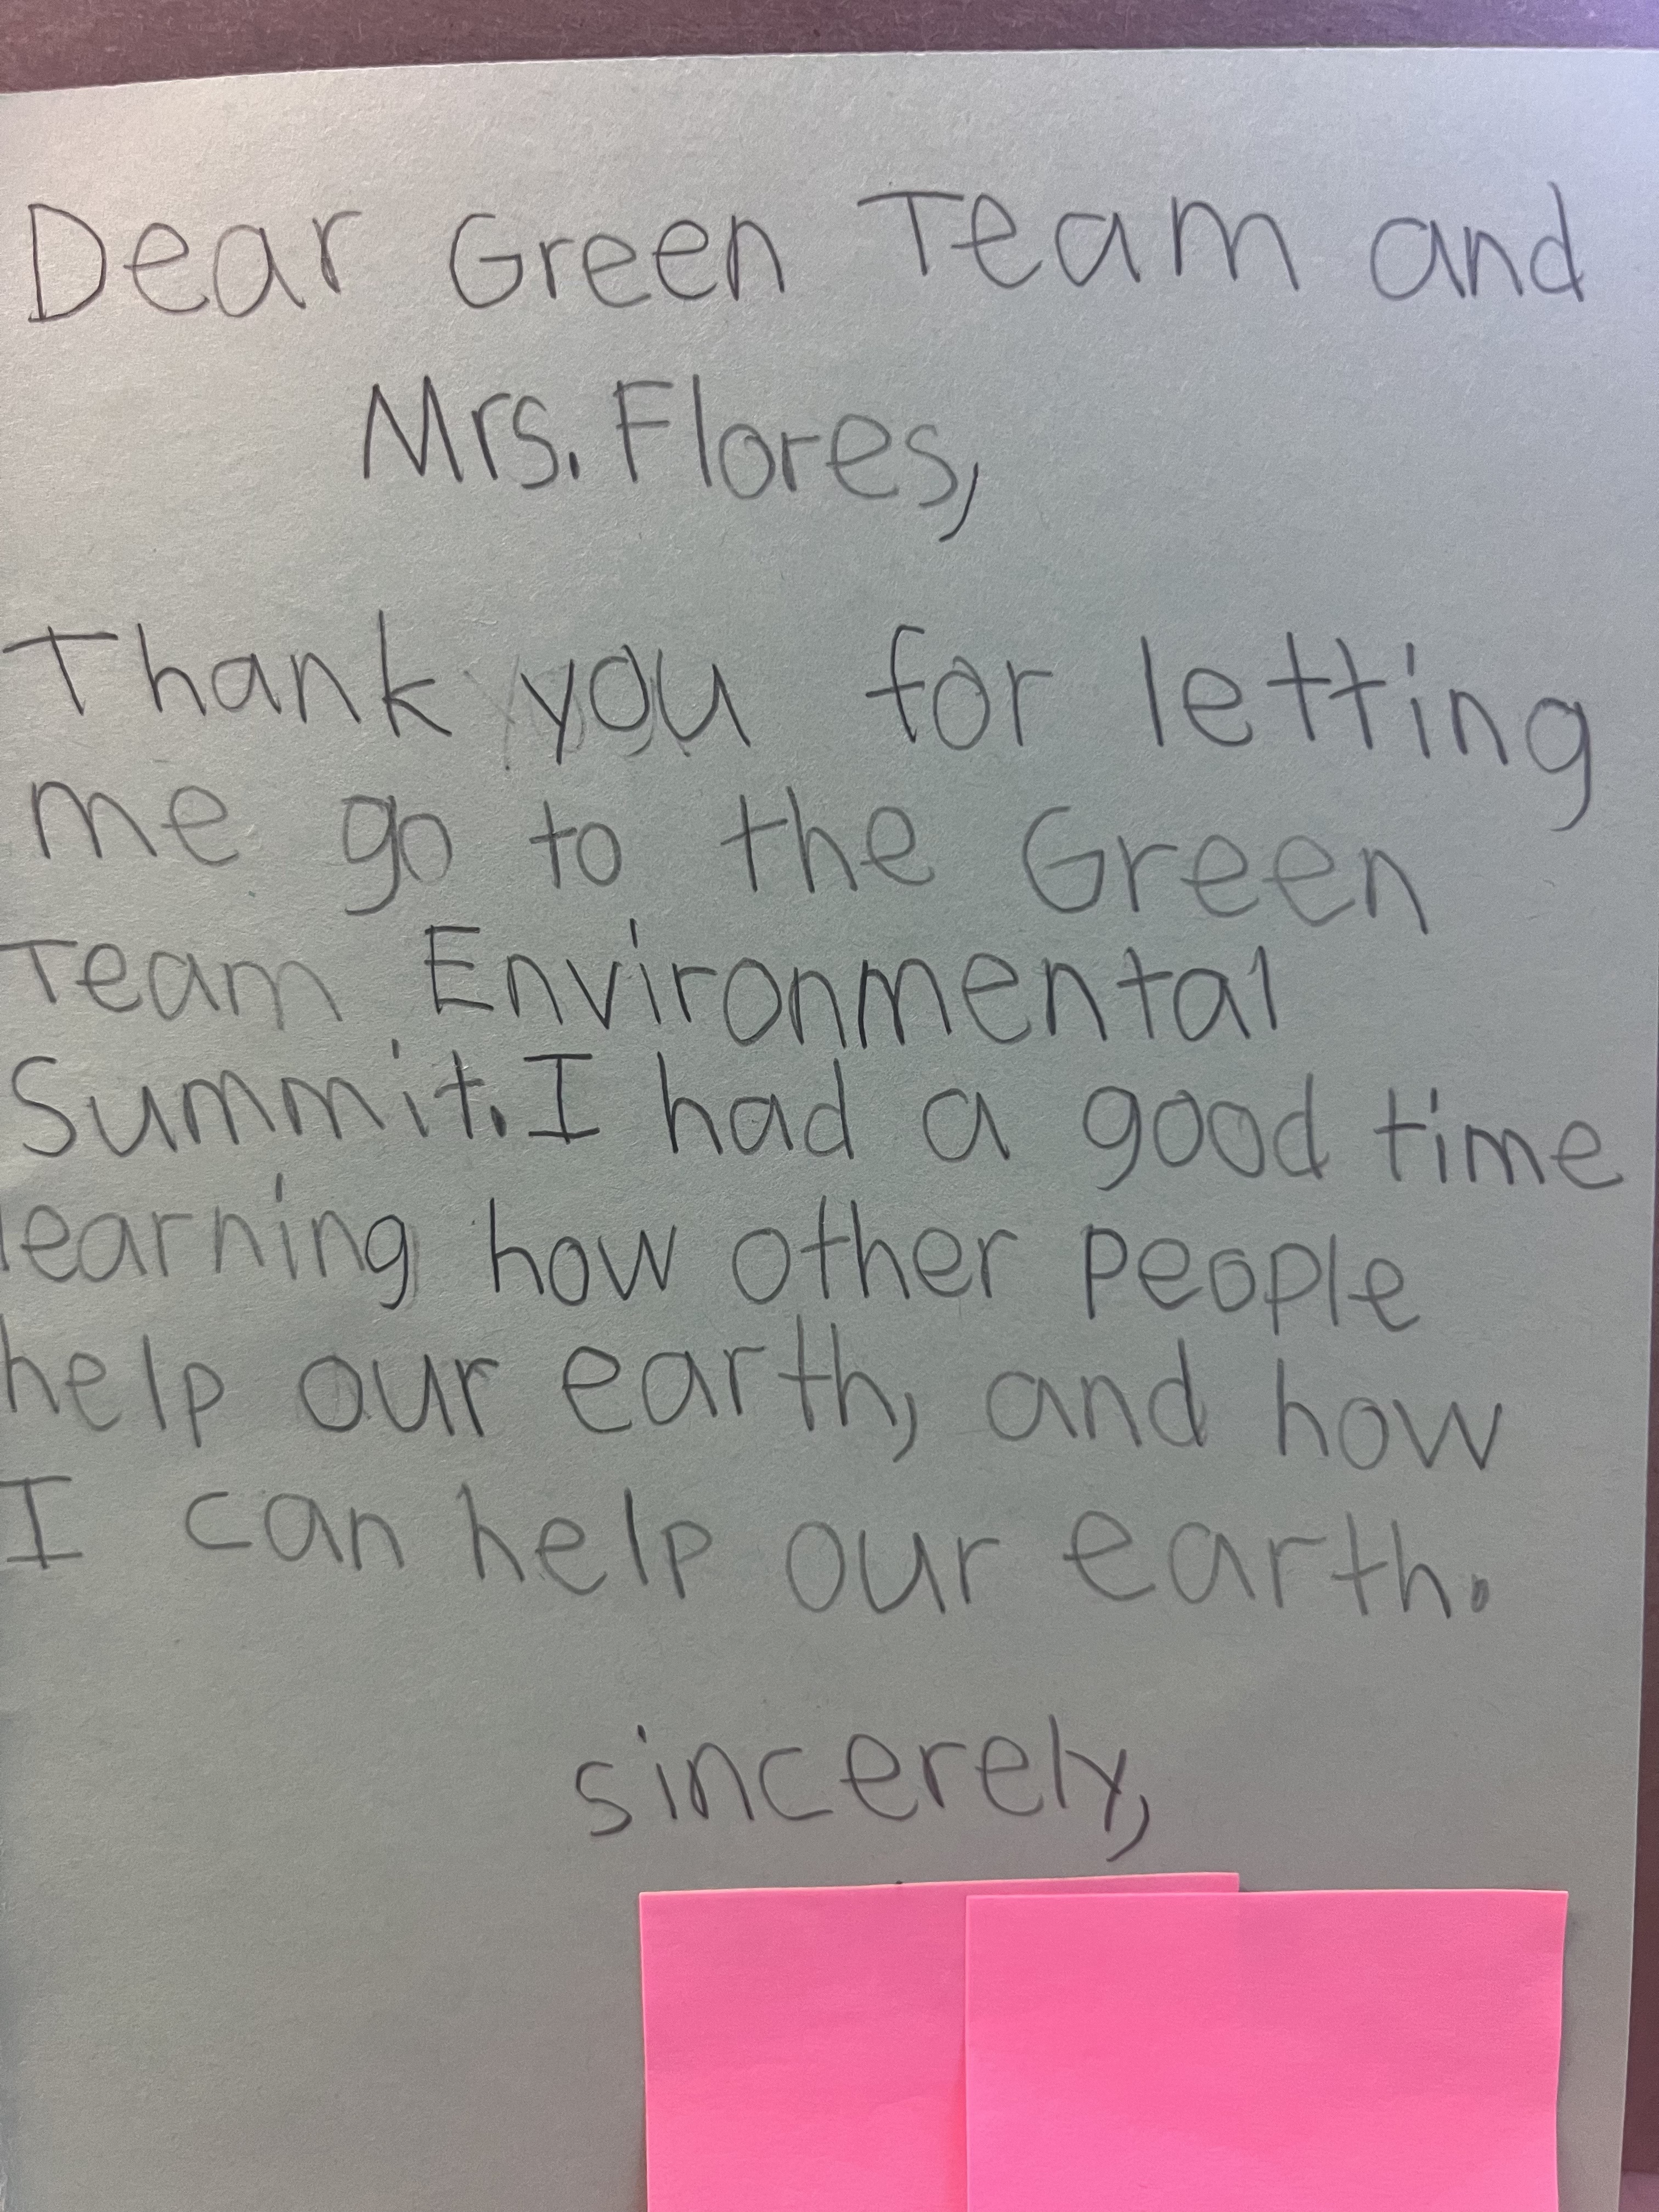 Dear Green Team and
Mrs. Flores,
Thank you for letting
me go to the Green
Team Environmental
Summit. I had a good time
learning how other people
help our earth, and how
I can help our earth.
sincerely,